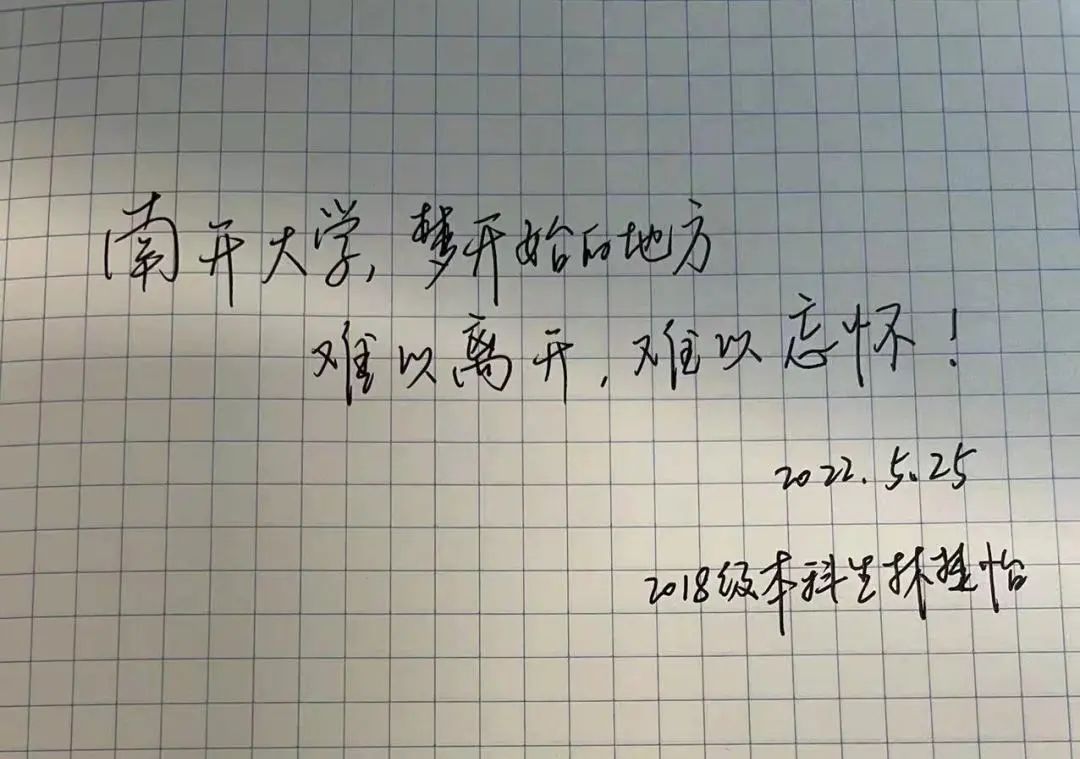 南开大学,梦开始的地方
难以离开,难以忘怀!
2022.5.25
2018级本科生林捷怡